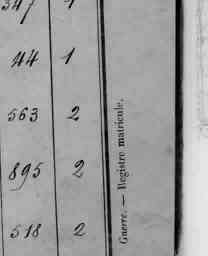 347 1
44 1
563 2
895 2
518 2
Guerre. — Registre matricule.